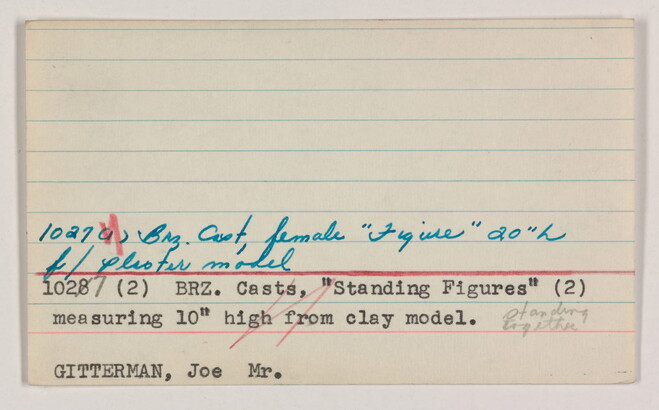 1027a) Brz. Cast, female "Figure" 20"h
f/ plaster model
10287 (2) BRZ. Casts, "Standing Figures" (2)
measuring 10" high from clay model.
standing
together
GITTERMAN, Joe Mr.